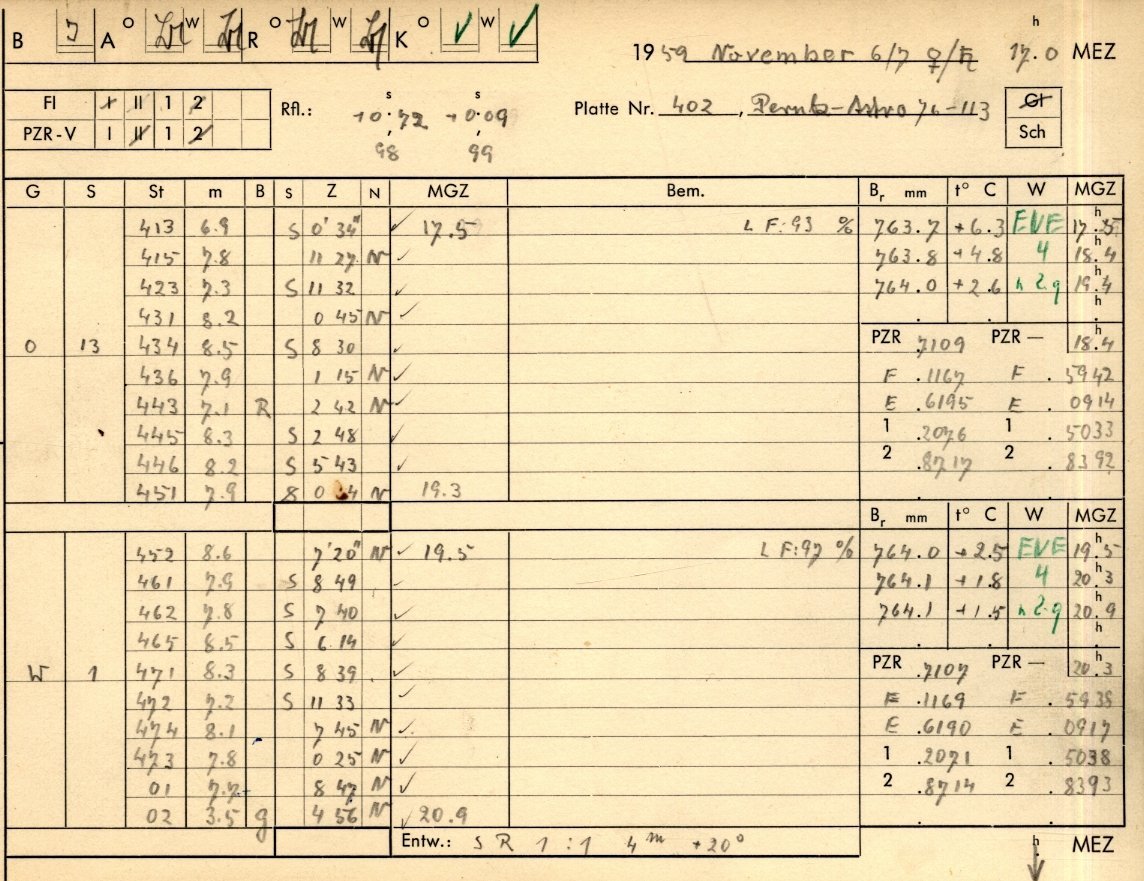 B J A O W R O W K O ✓ W ✓
1959 November 6/7 ♀/♄ 17.0 h MEZ
FI I II 1 2
PZR-V I II 1 2
Rfl.: +0.72 s +0.09 s
98 99
Platte Nr. 402, Perutz-Astro 76-113
GI
Sch
G S St m B S Z N MGZ Bem. Br mm t° C W MGZ
413 6.9 S 0' 34" ✓ 17.5 LF: 93 % 763.7 +6.3 EVE
415 7.8 11 27 N ✓ 763.8 +4.8 4 18.4
423 7.3 S 11 32 ✓ 764.0 +2.6 19.4
431 8.2 0 45 N ✓
O 13 434 8.5 S 8 30 ✓ PZR .7109 PZR — 18.4
436 7.9 1 15 N ✓ F .1167 F . 5942
443 7.1 R 2 42 N ✓ E .6195 E . 0914
445 8.3 S 2 48 ✓ 1 .2076 1 . 5033
446 8.2 S 5 43 ✓ 2 .8717 2 . 8392
451 7.9 0 4 N 19.3
Br mm t° C W MGZ
452 8.6 7' 20" N ✓ 19.5 LF: 97 % 764.0 +2.5 EVE 19.5
461 7.9 S 8 49 ✓ 764.1 +1.8 4 20.3
462 7.8 S 7 40 ✓ 764.1 +1.5 20.9
465 8.5 S 6 14 ✓
W 1 471 8.3 S 8 39 ✓ PZR .7107 PZR — 20.3
472 7.2 S 11 33 ✓ F .1169 F . 5938
474 8.1 7 45 N ✓ E .6190 E . 0917
473 7.8 0 25 N ✓ 1 .2071 1 . 5038
01 7.7 8 47 N ✓ 2 .8714 2 . 8393
02 3.5 g 4 56 N ✓ 20.9
Entw.: S R 1:1 4 m +20° h MEZ